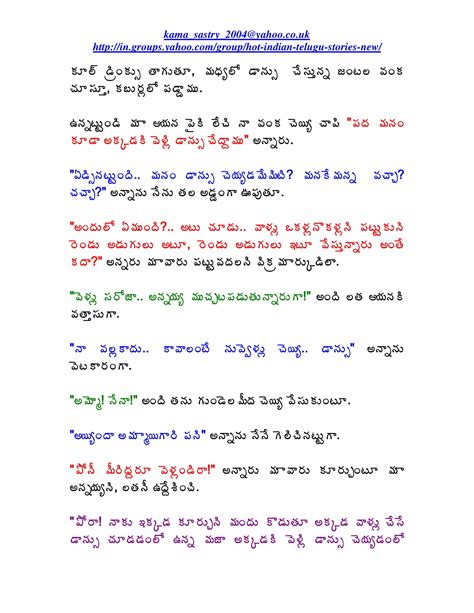 kama_sastry_2004@yahoo.co.uk
http://in.groups.yahoo.com/group/hot-indian-telugu-stories-new/
కూల్ డ్రింక్సు తాగుతూ, మధ్యలో డాన్సు చేస్తున్న జంటల వంక
చూస్తూ, కబుర్లలో పడ్డాము.
ఉన్నట్టుండి మా ఆయన పైకి లేచి నా వంక చెయ్యి చాపి "పద మనం
కూడా అక్కడకి వెళ్లి డాన్సుచేద్దాము" అన్నారు.
"ఏడ్సినట్టుంది.. మనం డాన్సు చెయ్యడమేమిటి? మనకేమన్న వచ్చా?
చచ్చా?" అన్నాను నేను తల అడ్డంగా ఊపుతూ.
"అందులో ఏముంది?.. అటు చూడు.. వాళ్లు ఒకళ్లనొకళ్లని పట్టుకుని
రెండు అడుగులు అటూ, రెండు అడుగులు ఇటూ వేస్తున్నారు అంతే
కదా?" అన్నరు మావారు పట్టువదలని విక్రమార్కుడిలా.
"వెళ్లు సరోజా.. అన్నయ్య ముచ్చటపడుతున్నారుగా!" అంది లత ఆయనకి
వత్తాసుగా.
"నా వల్లకాదు.. కావాలంటే నువ్వెళ్లు చెయ్యి.. డాన్సు" అన్నాను
వెటకారంగా.
"అమ్మో! నేనా!" అంది తను గుండెలమీద చెయ్యి వేసుకుంటూ.
"అయ్యిందా అమ్మాయిగారి పని" అన్నాను నేనే గెలిచినట్టుగా.
"పోనీ మీరిద్దరూ వెళ్లండిరా!" అన్నారు మావారు కూర్చుంటూ మా
అన్నయ్యని, లతనీ ఉద్దేశించి.
"పోరా! నాకు ఇక్కడ కూర్చుని మందు కొడుతూ అక్కడ వాళ్లు చేసే
డాన్సు చూడడంలో ఉన్న మజా అక్కడకి వెళ్లి డాన్సు చెయ్యడంలో